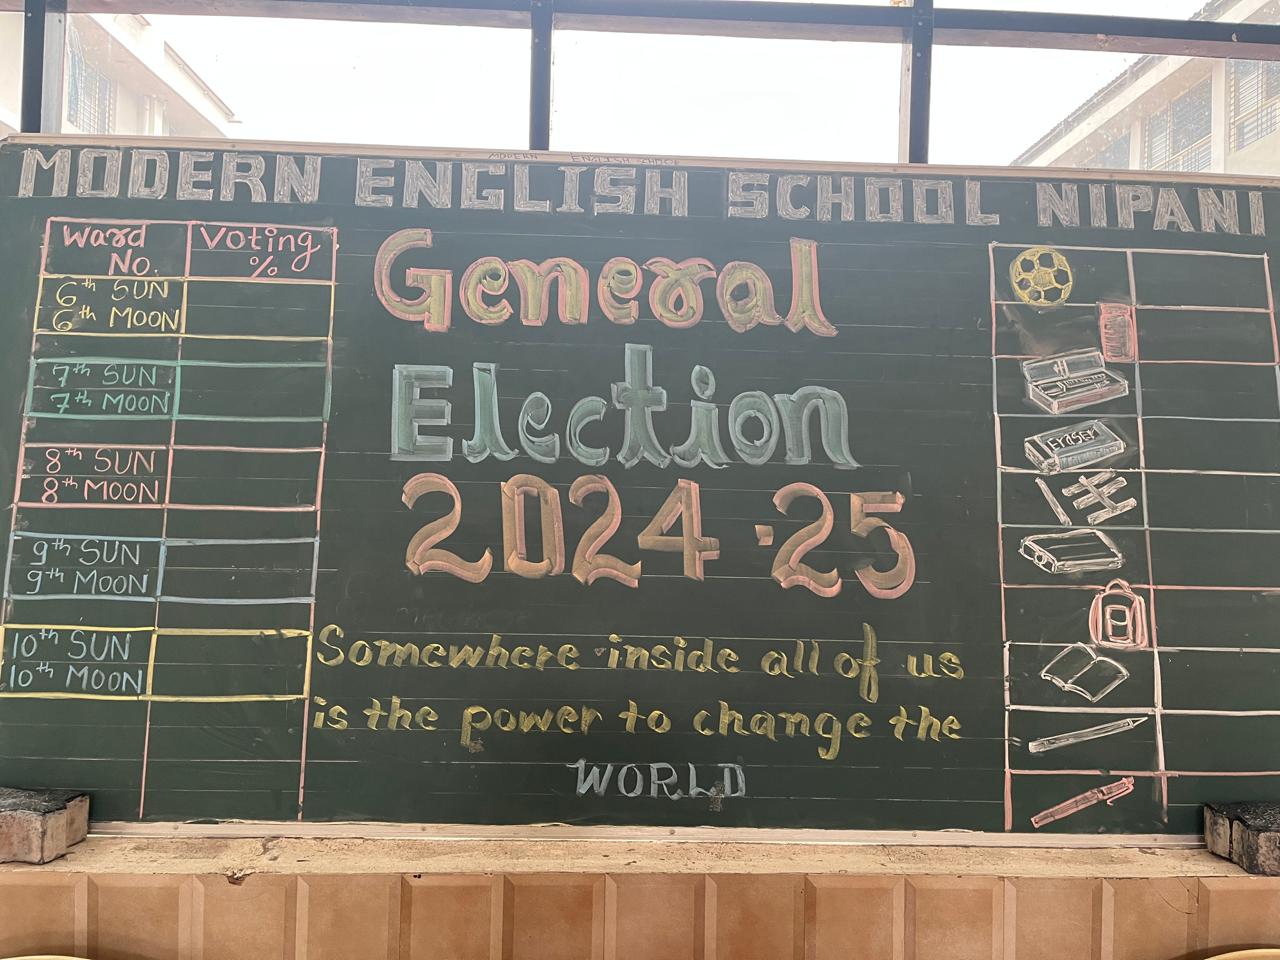 MODERN ENGLISH SCHOOL
MODERN ENGLISH SCHOOL NIPANI
Ward No.
Voting %
6th SUN
6th MOON
7th SUN
7th MOON
8th SUN
8th MOON
9th SUN
9th MOON
10th SUN
10th MOON
General
Election
2024-25
Somewhere inside all of us
is the power to change the
WORLD
Eraser